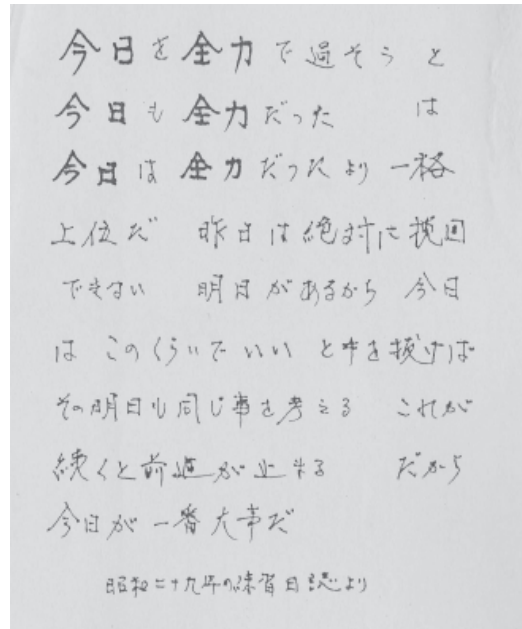 今日を全力で過そう と
今日も全力だった は
今日は全力だったより 一格
上位だ 昨日は絶対に挽回
できない 明日があるから 今日
は このくらいで いい と手を抜けば
その明日も同じ事を考える これが
続くと前進が止まる だから
今日が一番大事だ
昭和二十九年の練習日誌より